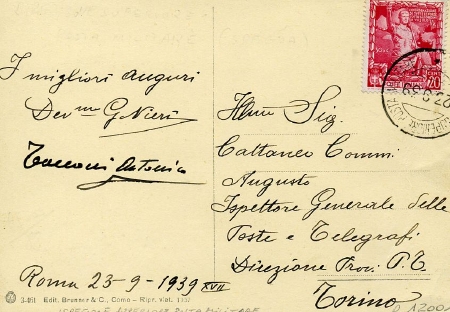 I migliori auguri
Dev.mo G. Nieri
Tacconi Antonio
Roma 23-9-1939 XVII
3-451 Edit. Brunner & C., Como - Ripr. viet.
Ill.mo Sig.
Cattaneo Comm.
Augusto
Ispettore Generale delle
Poste e Telegrafi
Direzione Prov. P.T.
Torino